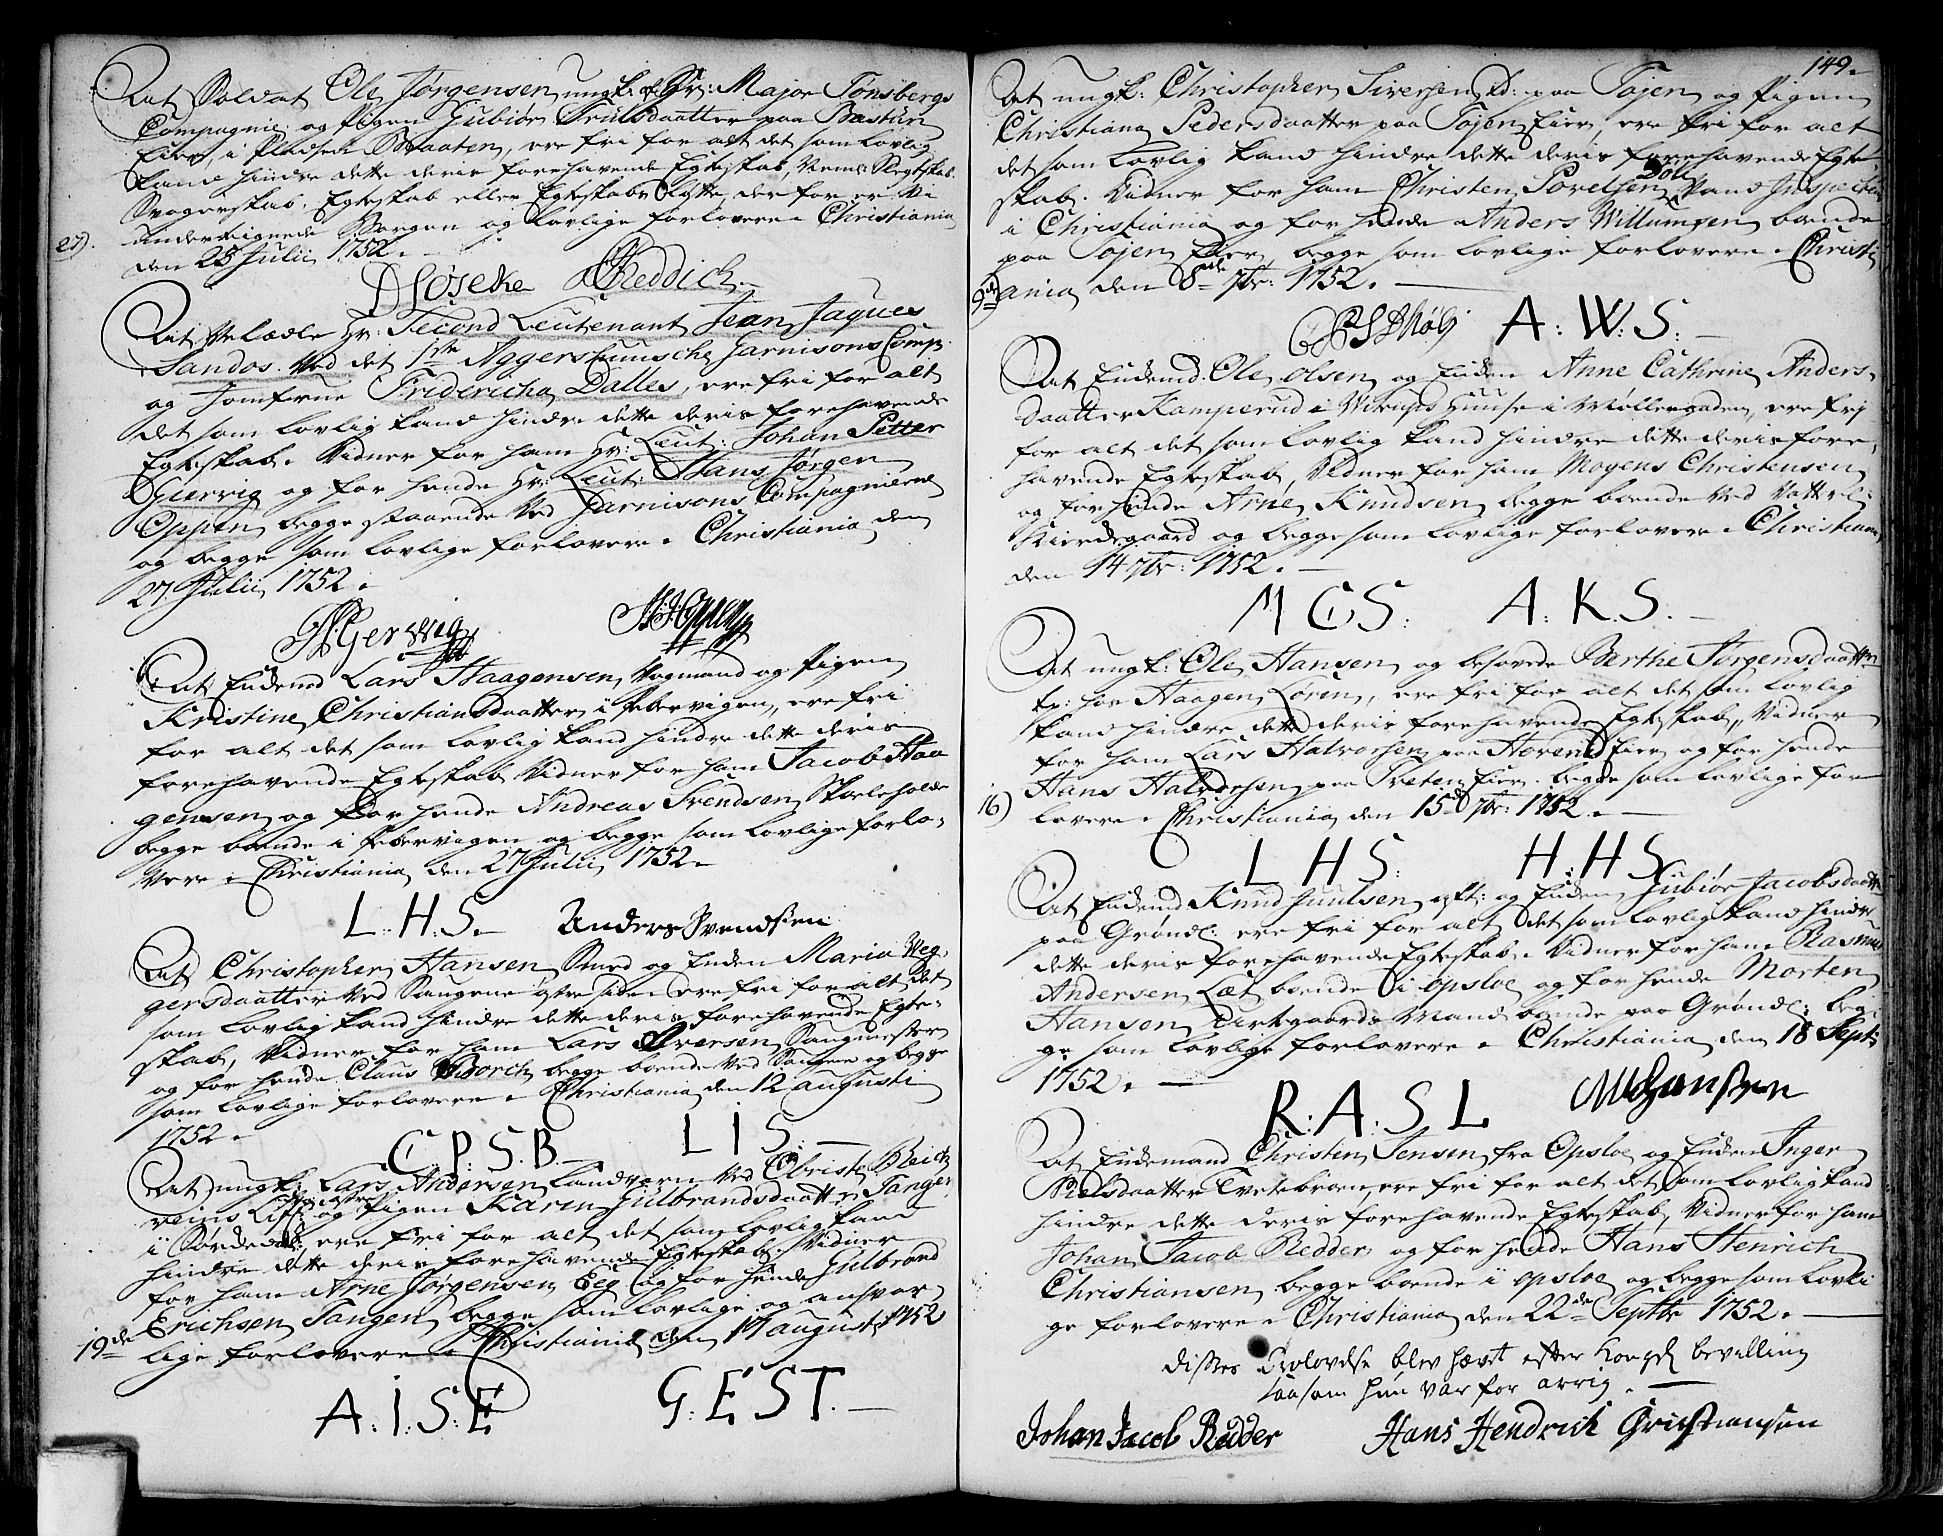 At Soldat Ole Jørgensen ungk: af Hr: Major Tønsbergs
Compagnie og Pigen Gubiør Truulsdaatter paa Bastún
Eier, i Pladsen Braaten, ere fri for alt det som lovlig
kand hindre dette deris forehavende Egteskab, Neml: Slegtskab
Svogerskab, Egteskab eller Egteskabs Løfte, derfor er Vi
underteignede Borgen og lovlige forlovere. Christiania
27).
den 25 Julii 1752.
Søseke Reddich.
At Velædle Hr: Second Leutenant Jean Jaques
Sandos Ved det 1ste Aggershuusche Garnisons Comp.
og Jomfrue Fridericha Dalles, ere fri for alt
det som lovlig kand hindre dette deris forehavende
Egteskab. Vidner for ham Hr: Leut: Johan Petter
Giervig og for hende Hr: Leut: Hans Jørgen
Oppen, begge staaende Ved Garnisons Compagnierne
og begge som lovlige forlovere. Christiania den
27 Julii 1752.
Gervvig Oppen
At Enkemd Lars Haagensen, Vogmand og Pigen
Kristine Christiansdaatter i Pebervigen, ere fri
for alt det som lovlig kand hindre dette deris
forehavende Egteskab Vidner for ham Jacob Haa
gensen, og for hende Andreas Svendsen, Skoeleholder
begge boende i Pebervigen og begge som lovlige forlo-
vere. Christiania den 27 Julii 1752.
L.H.S. Anders Svendsien
At Christopher Hansen Smed og Enken Maria Weg-
gersdaatter Ved Saugene østre side. ere fri for alt det
som lovlig kand hindre dette deris forehavende Egte-
skab, Vidner for ham Lars Iversen Saugmester
og for hende Claus begge boende Ved Saugene og begge
som lovlige forlovere. Christiania den 12 augusti
1752.
C.P:S.B. L I S.
At ungk: Lars Andersen, Landværn Ved Obriste Reich
veins og Pigen Karen Gulbrandsdaatter Tangen
i Sørdedal, ere fri for alt det som lovlig kand
hindre dette deris forehavende Egteskab. Vidner
for ham Arne Jørgensen Eeg og for hende Gulbrand
Erichsen Tangen begge som lovlige og ansvar
19de
lige forlovere. Christiania den 17 august 1752
A.I.S:E G:E S T.
149.
At ungk: Christopher Siversen, paa Tøjen og Pigen
Christiana Pedersdaatter paa Tøjen Eier, ere fri for alt
det som lovlig kand hindre dette deris forehavende Egte-
skab. Vidner for ham Christen Sørensen Vand Inspecteur
i Christiania og for hende Anders Willumsen boende
paa Tøjen Eier, begge som lovlige forlovere. Christi
9de
ania den 8de 7br: 1752.
A: W: S:
At Enkemd: Ole Olsen og Enken Anne Cathrine Anders-
daatter Kamperud i Huuse i Møllergaden, ere fri
for alt det som lovlig kand hindre dette deris fore-
havende Egteskab, Vidner for ham Mogens Christensen
og for hende Arne Knudsen begge boende Ved Vatterl:
Kierdegaard og begge som lovlige forlovere. Christiania
den 14 7br: 1752.
M C S. A.K.S.
At ungk: Ole Hansen, og besovede Berthe Jørgensdaatter
tr: hos Haagen Løren, ere fri for alt det som lovlig
kand hindre dette deris forehavende Egteskab, Vidner
for ham Lars Halvorsen paa Hovend Eier og for hende
Hans Halvorsen paa Tveten Eier. begge som lovlige for
16)
lovere. Christiania den 15de 7br: 1752.
L H S. H:H S
At Enkemd Knud Juulsen og Enken Gubiør Jacobsdaatter
paa Grønl: ere fri for alt det som lovlig kand hindre
dette deris forehavende Egteskab. Vidner for ham Rasmus
Andersen Læt boende i opsloe og for hende Morten
Hansen, Urtegaards Mand boende paa Grønl: beg-
ge som lovlige forlovere. Christiania den 18 Septr
1752.
R:A:S L MHansen
At Enkemand Christen Jensen fra Opsloe og Enken Inger
Nielsdaatter Tvetebroen, ere fri for alt det som lovlig kand
hindre dette deris forehavende Egteskab, Vidner for ham
Johan Jacob Redder og for hende Hans Henrich
Christiansen, begge boende i opsloe og begge som lovli
ge forlovere. Christiania den 22de Septbr 1752.
Disses Trolovelse blev hævet efter kongel bevilling
saasom hun var for arrig.
Johan Jacob Redder Hans Hendrick Cristiansen